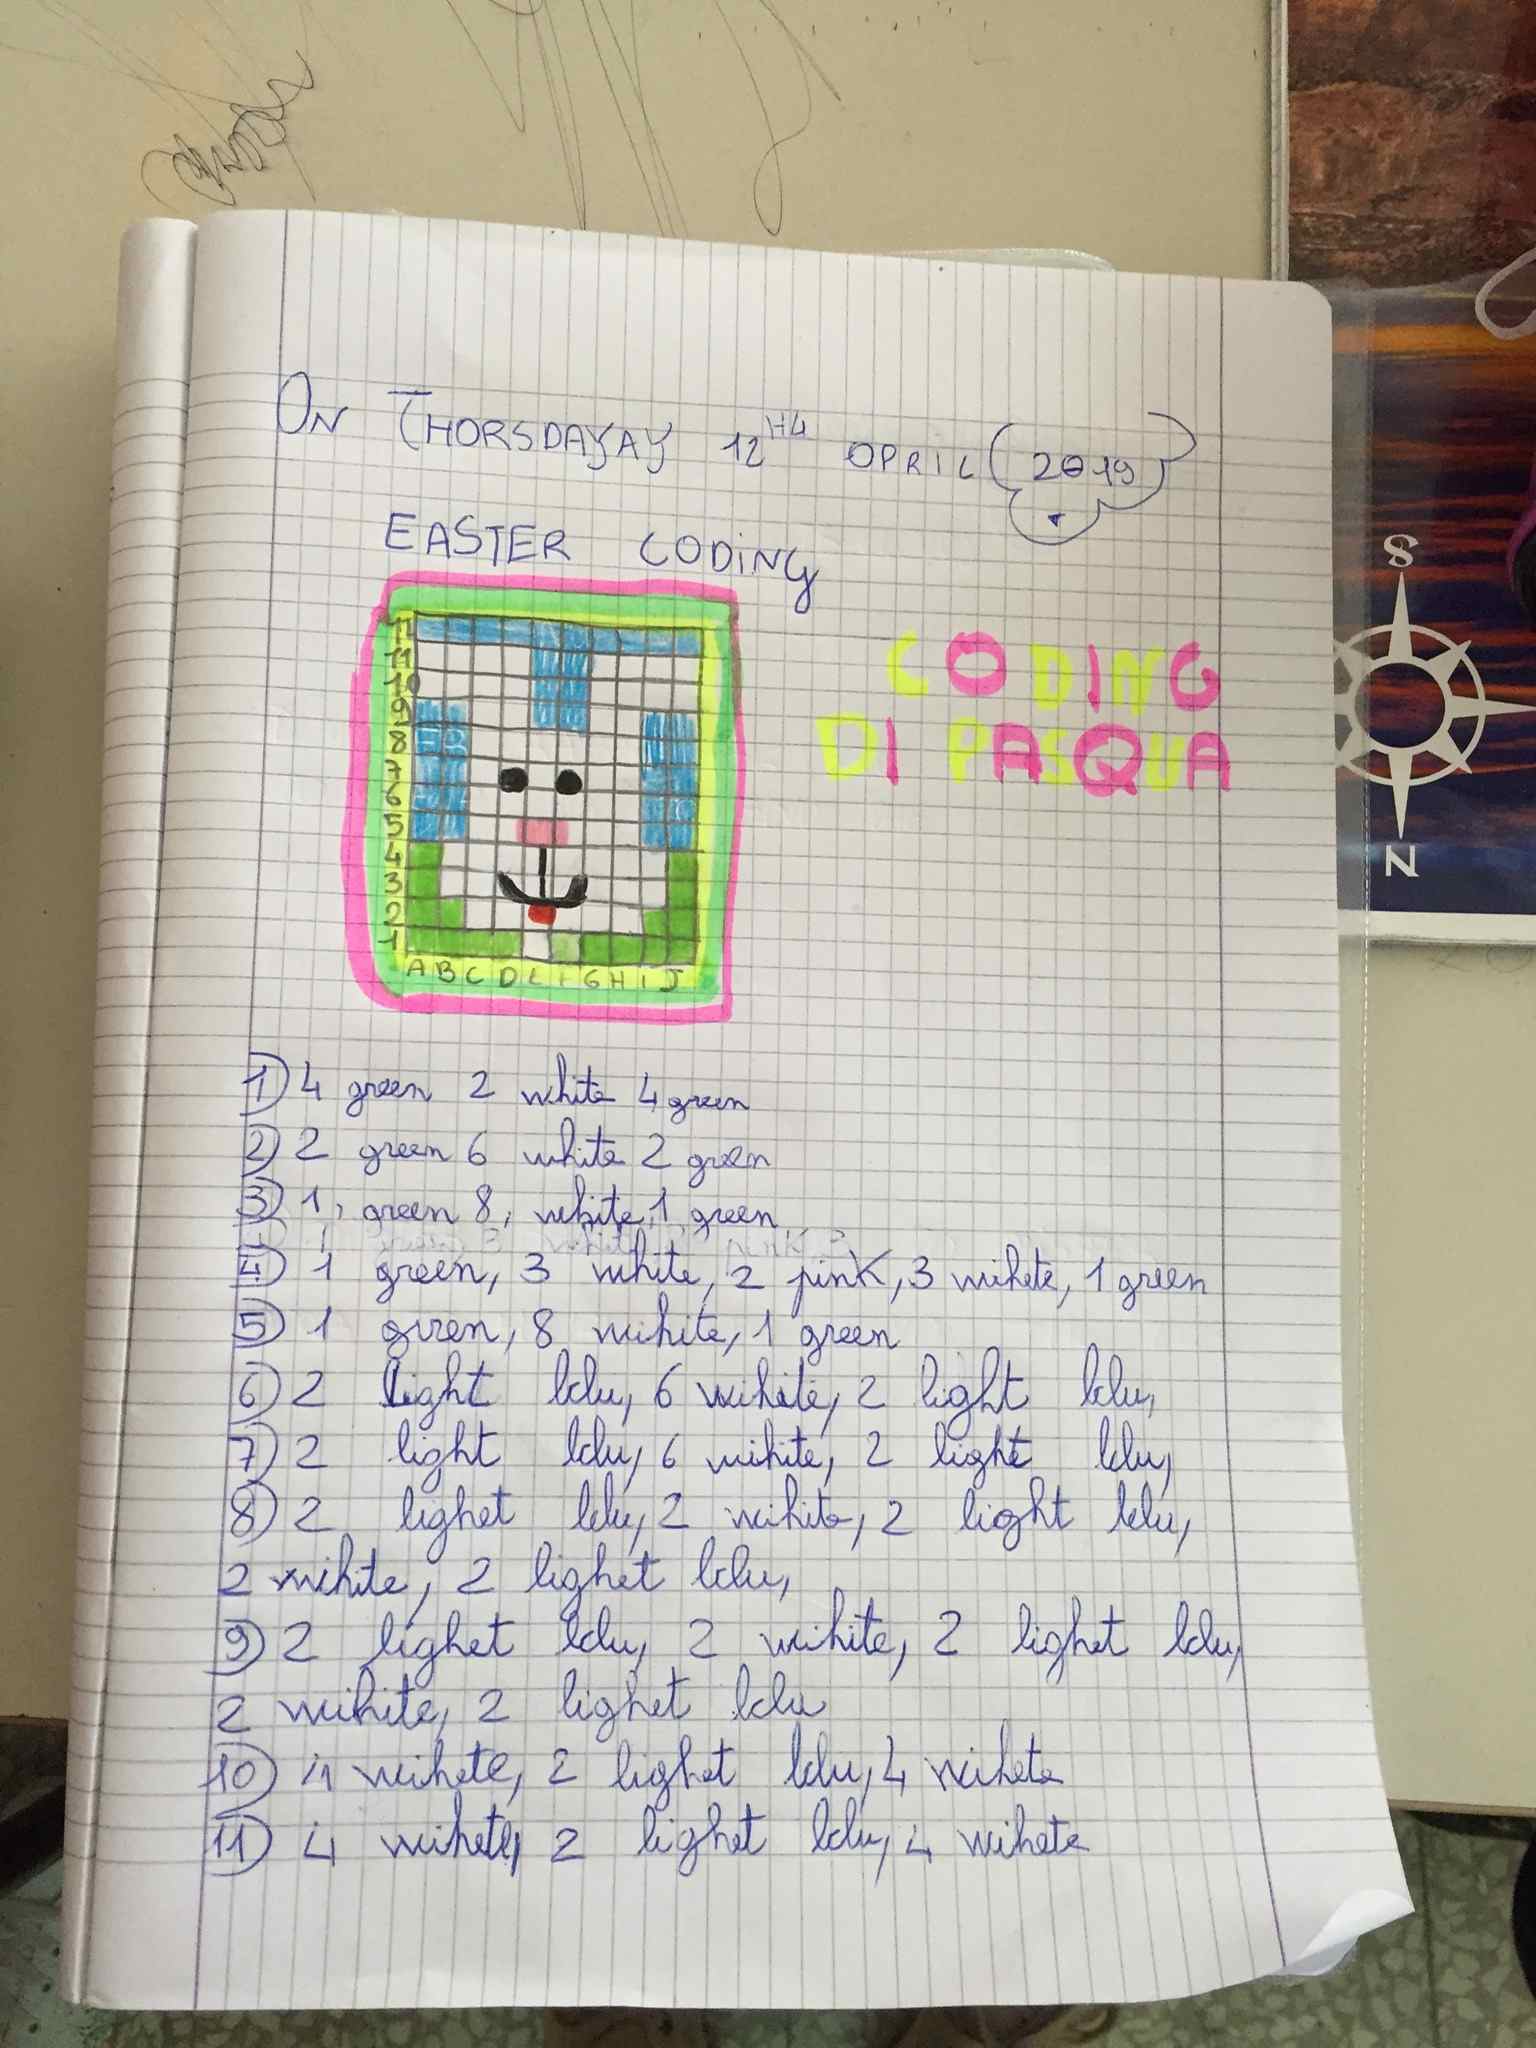 ON THORSDAYAY 12H4 OPRIL 2019
EASTER CODING
CODING
DI PASQUA
11
11
10
9
8
7
6
5
4
3
2
1
A B C D E F G H I J
1) 4 green 2 white 4 green
2) 2 green 6 white 2 green
3) 1, green 8, white, 1 green
4) 1 green, 3 white, 2 pink, 3 wihete, 1 green
5) 1 green, 8 wihite, 1 green
6) 2 light blu, 6 wihite, 2 light blu,
7) 2 light blu, 6 wihite, 2 light blu,
8) 2 lighet blu, 2 wihite, 2 light blu,
2 wihite, 2 lighet blu,
9) 2 lighet blu, 2 wihite, 2 lighet blu,
2 wihite, 2 lighet blu
10) 4 wihete, 2 lighet blu, 4 wihete
11) 4 wihete, 2 lighet blu, 4 wihete
S
N